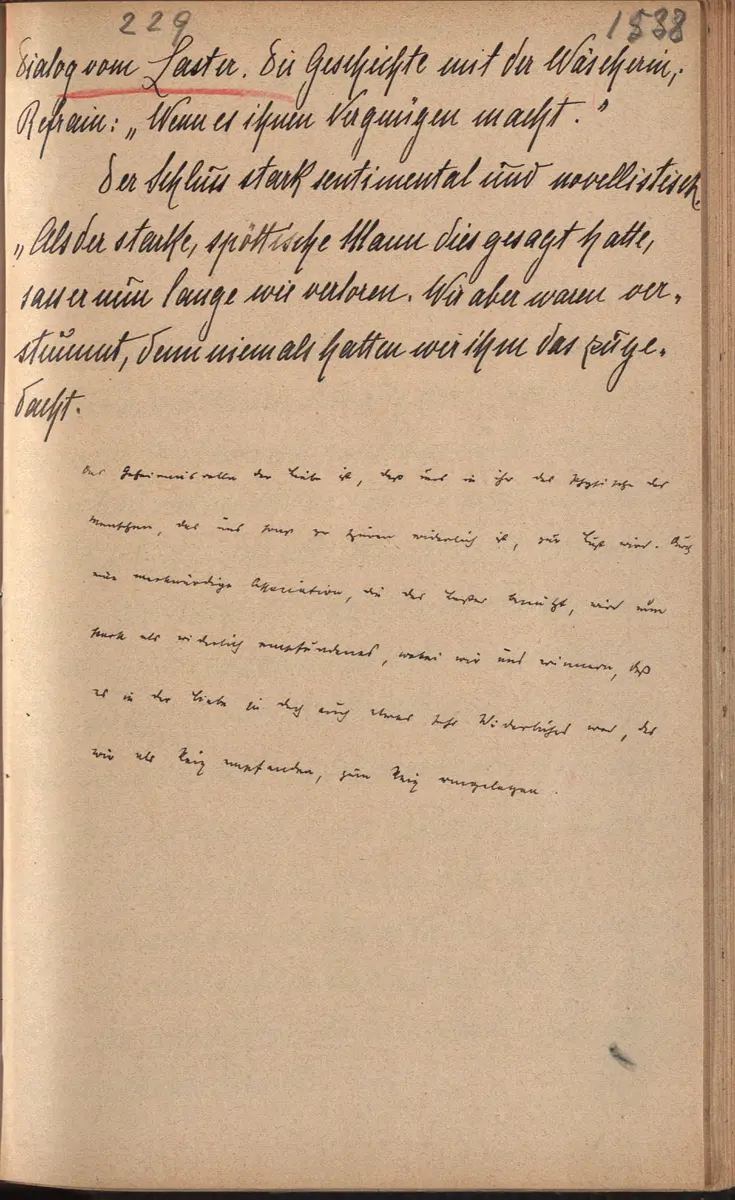 229 1538
Dialog vom Laster. Die Geschichte mit der Wäscherin,
Refrain: „Wenn es ihnen Vergnügen macht.“
Der Schluss stark sentimental und novellistisch.
„Als der starke, spöttische Mann dies gesagt hatte,
sass er nun lange wie verloren. Wir aber waren ver-
stummt, denn niemals hatten wir ihm das zuge-
dacht.
Das Geheimnisvolle der Liebe ist, daß uns in ihr das Physische des
Menschen, das uns sonst zu widerlich ist, zur Lust wird. Durch
eine merkwürdige Association, die das Laster benützt, wird nun
stark als widerlich empfundenes, wobei wir uns erinnern, daß
es in der Liebe ja doch auch etwas sehr Widerliches war, das
wir als Reiz empfanden, zum Reiz umgelogen.